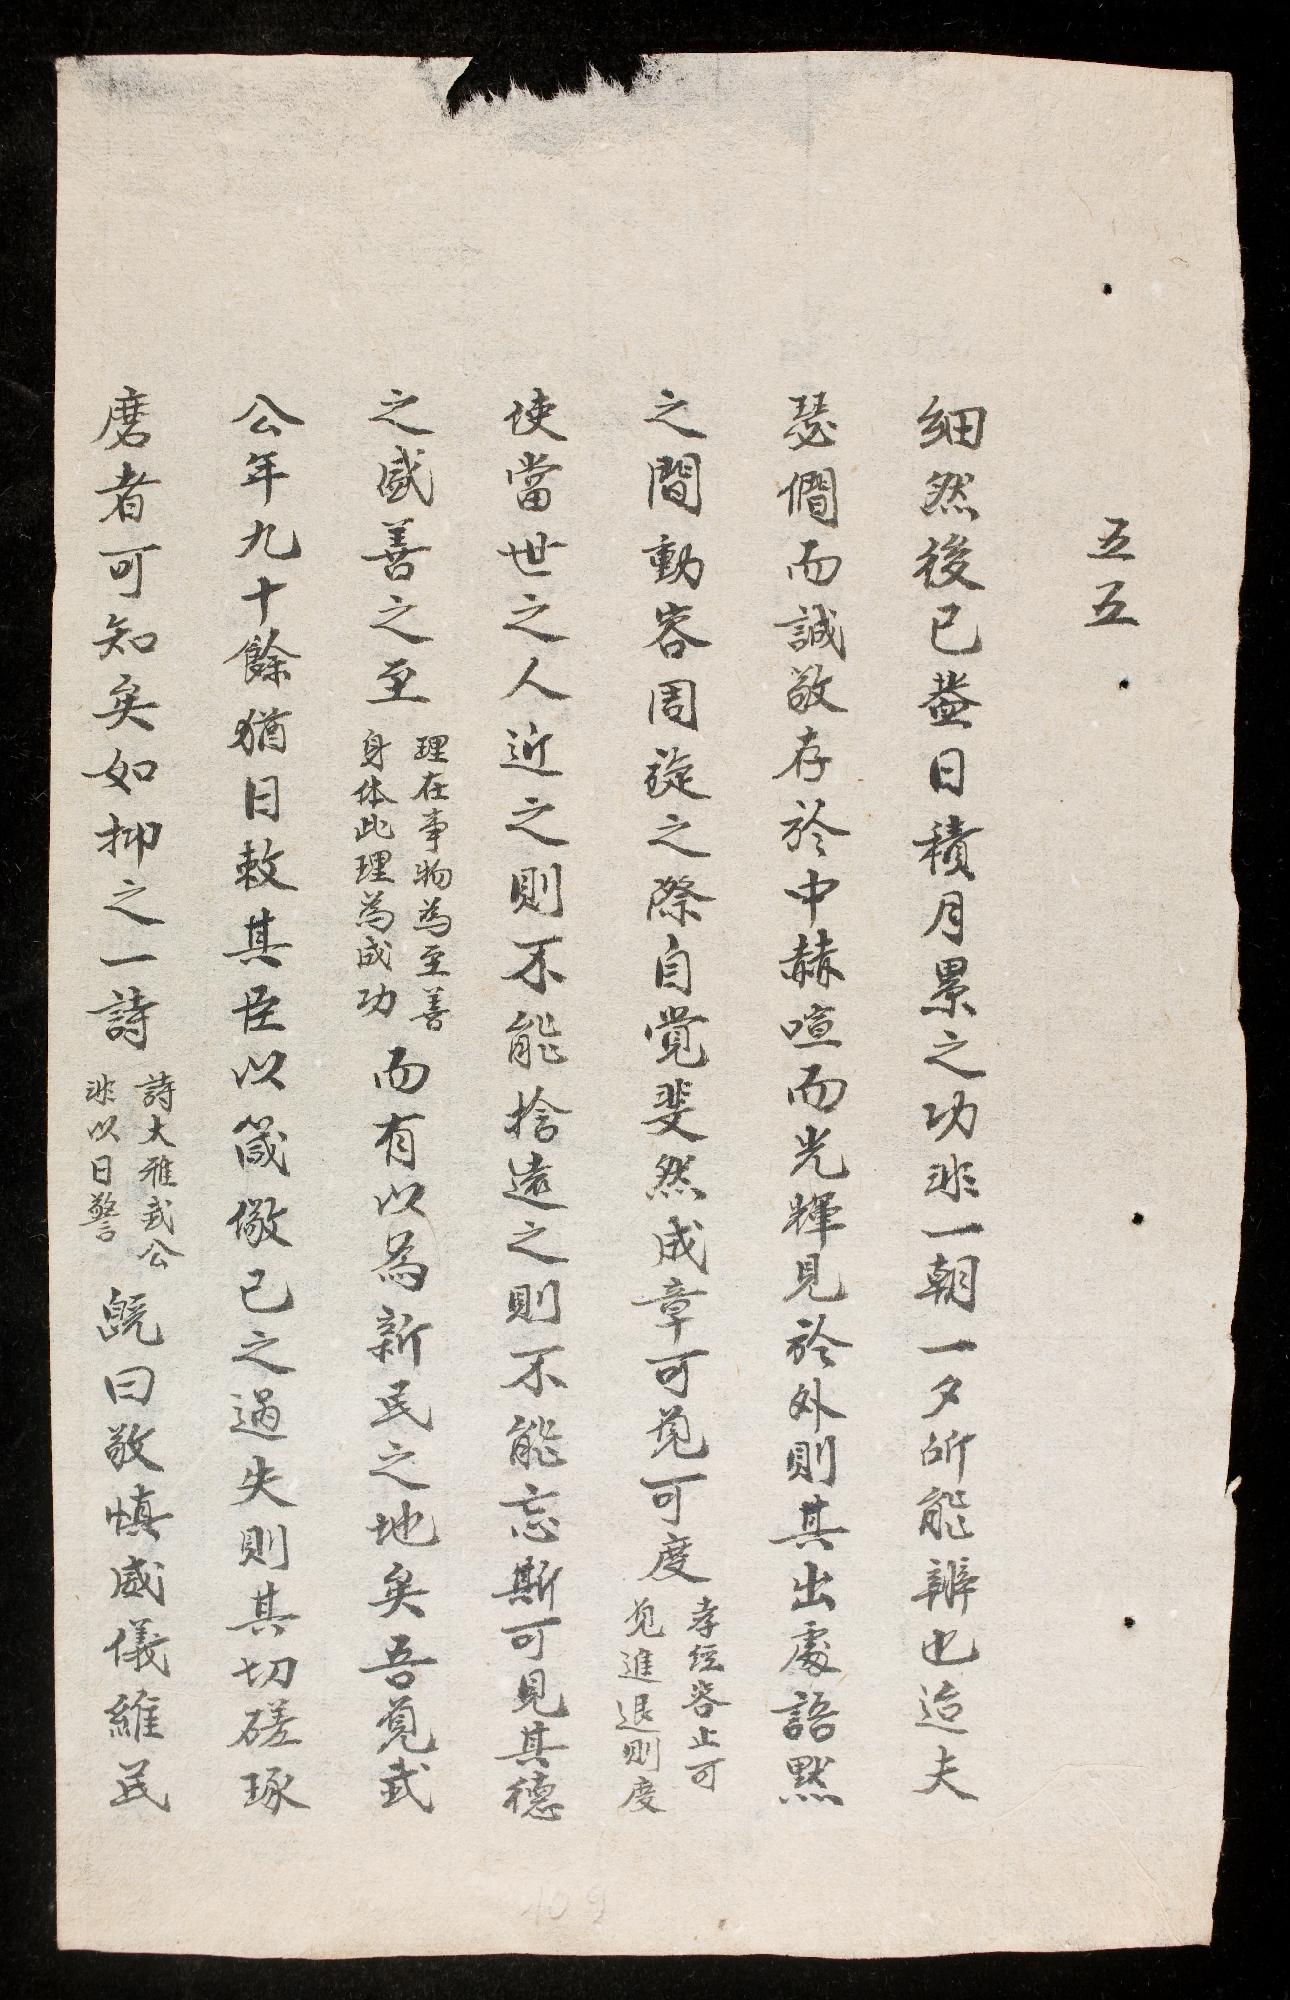 五五
細然後已蓋日積月累之功非一朝一夕所能辨也迨夫
瑟僩而誠敬存於中赫喧而光輝見於外則其出處語默
之間動容周旋之際自覺斐然成章可覌可度
孝経容止可
覌進退則度
使當世之人近之則不能捨遠之則不能忘斯可見其德
之盛善之至
理在事物為至善
身体此理為成功
而有以為新民之地矣吾覌武
公年九十餘猶日敕其臣以箴儆己之過失則其切磋琢
磨者可知矣如抑之一詩
詩大雅武公
非以日警
既曰敬慎威儀維民